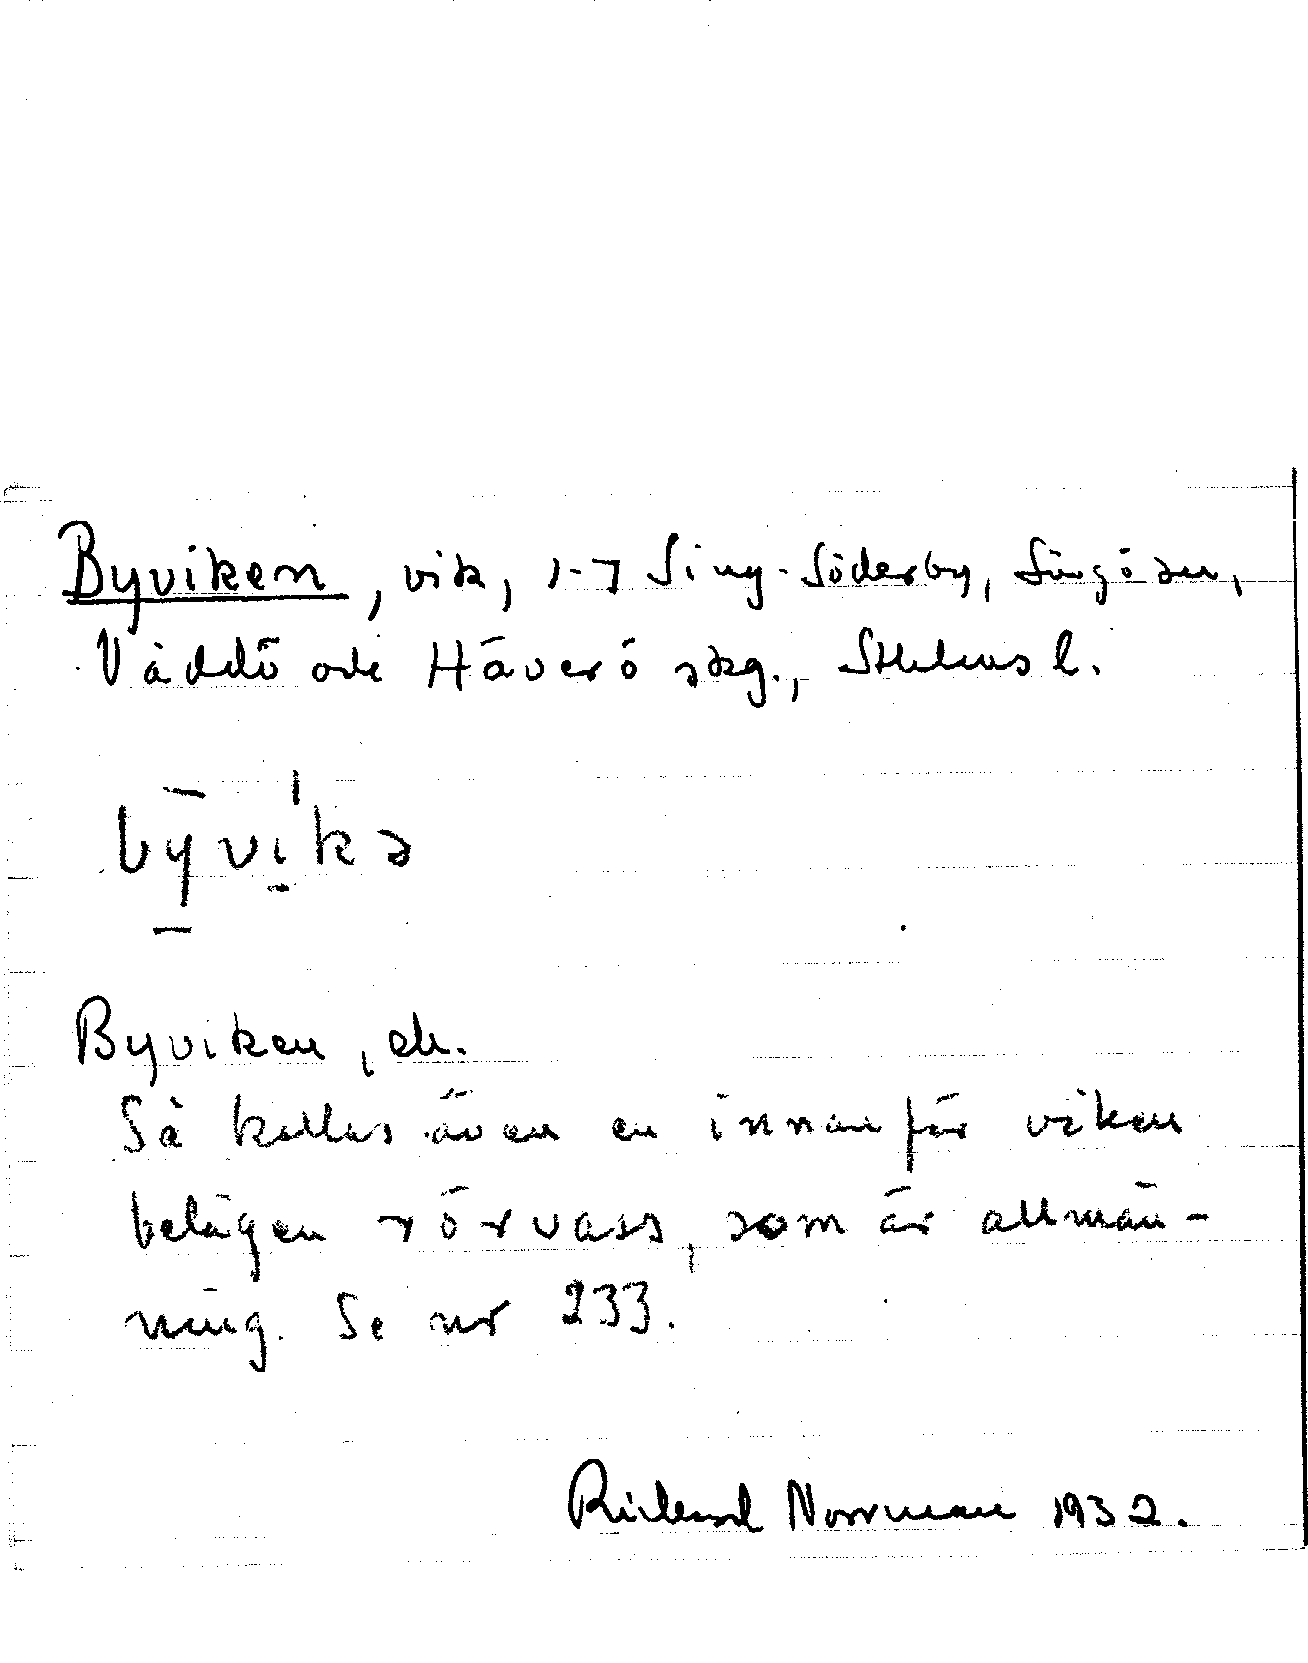 Byviken, vik, 1-7 Sing-Söderby, Singö sn,
Väddö och Häverö skg., Sthlms l.
bývika
Byviken, ek.
Så kallas även en innanför viken
belägen rörvass, som är allmän-
ning. Se nr 233.
Richard Norrman 1932.